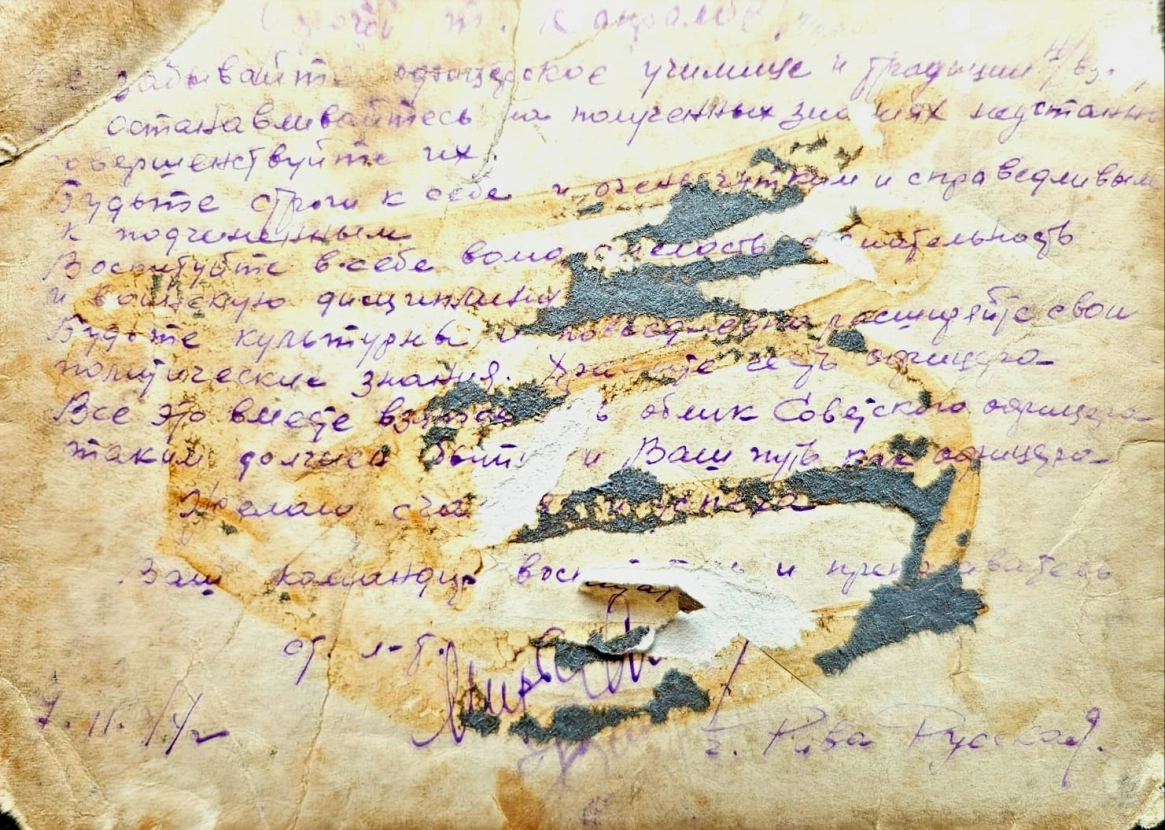 забывайте офицерское училище и традиции
останавливайтесь на полученных знаниях неустанно
совершенствуйте их.
Будьте строги к себе и очень чутким и справедливым
к подчиненным
Воспитуйте в себе волю, смелость
и воинскую дисциплину
Будьте культурны и расширяйте свои
политические знания. Храните честь офицера
Все это вместе в облик Советского офицера
таким должен быть и Ваш путь как офицера
Желаю и успеха
Ваш командир и преподаватель
ст. л-т.
г. Рава Русская.